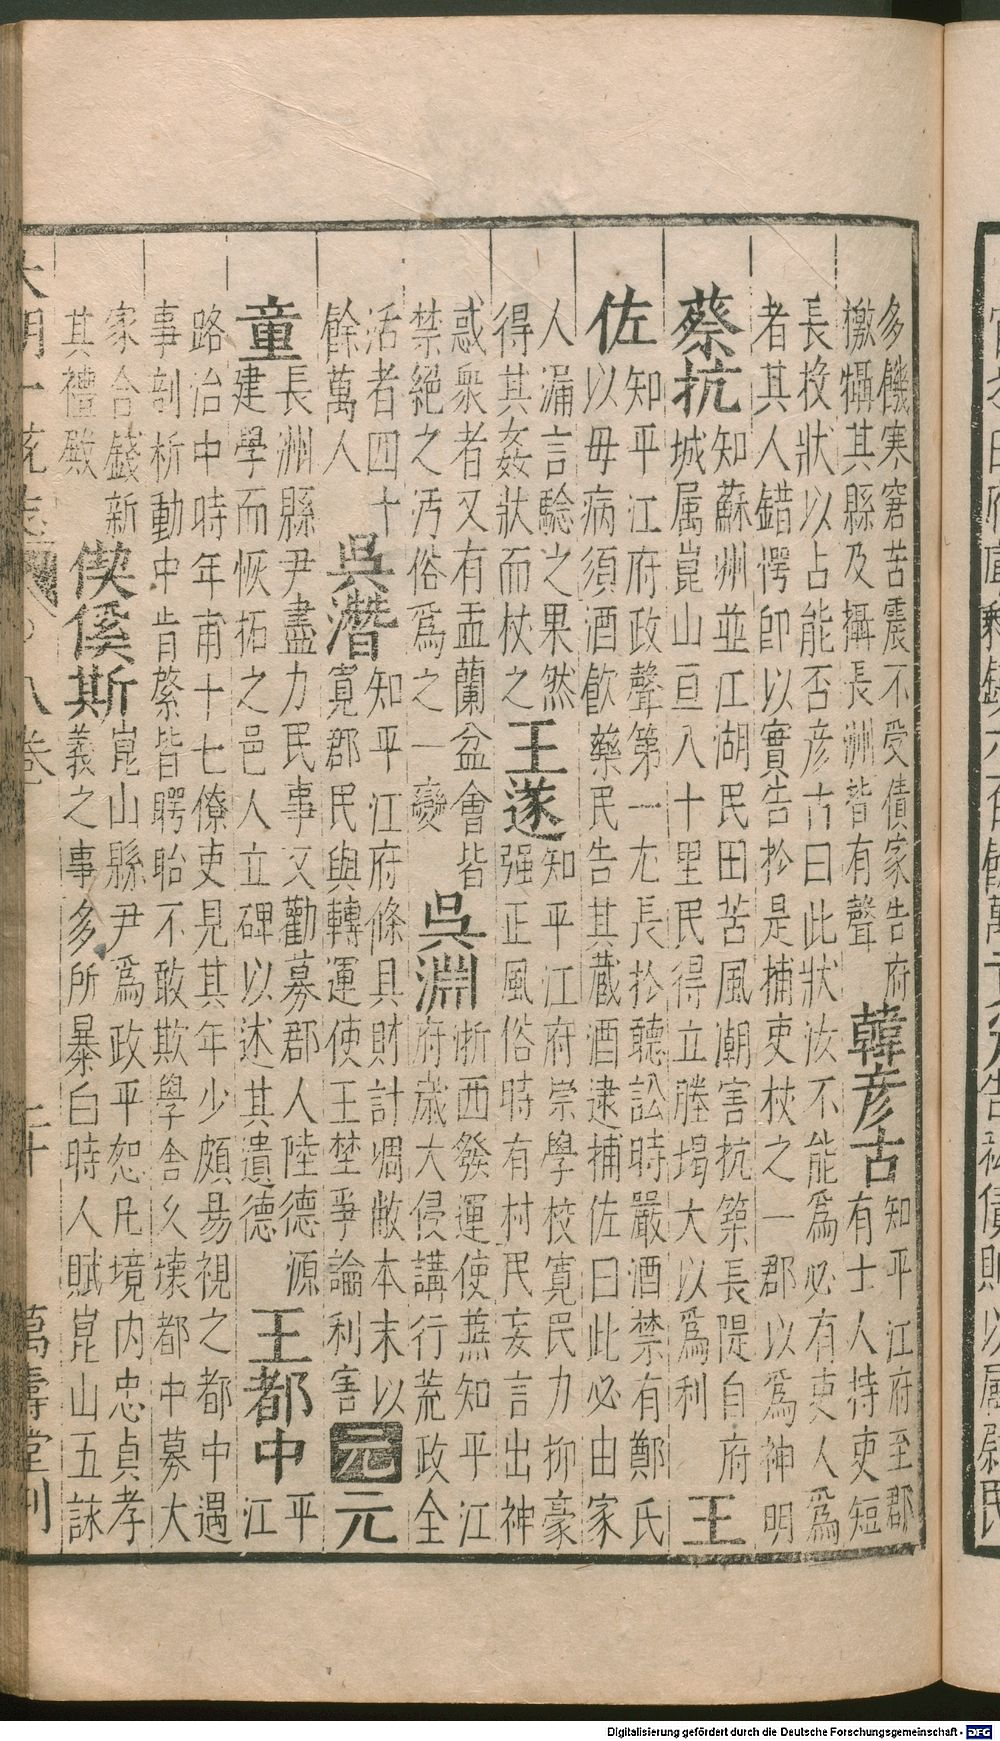 多饑寒窘苦震不受債家告府
檄犒其縣及攝長洲皆有聲
韓彥古
知平江府至郡
有士人持吏短
長投狀以占能否彥古曰此狀汝不能爲必有吏人爲
者其人錯愕卽以實告於是捕吏杖之一郡以爲神明
蔡抗
知蘇州並江湖民田苦風潮害抗築長隄自府
城属崑山亘八十里民得立塍堨大以爲利
王
佐
知平江府政聲第一尤長於聽訟時嚴酒禁有鄭氏
以毋病須酒飮藥民告其藏酒逮捕佐曰此必由家
人漏言驗之果然
得其姦狀而杖之
王遂
知平江府崇學校寬民力抑豪
强正風俗時有村民妄言出神
惑衆者又有盂蘭盆會皆
禁絕之汚俗爲之一變
吳淵
浙西發運使兼知平江
府歲大侵講行荒政全
活者四十
餘萬人
吳潛
知平江府條具財計凋敝本末以
寬郡民與轉運使王埜爭論利害
元
元
童
長洲縣尹盡力民事又勸募郡人陸德源
建學而恢拓之邑人立碑以述其遺德
王都中
平
江
路治中時年甫十七僚吏見其年少頗易視之都中遇
事剖析動中肯綮皆愕眙不敢欺學舍久壞都中募大
家合錢新
其禮殿
偰傒斯
崑山縣尹爲政平恕凡境内忠貞孝
義之事多所暴白時人賦崑山五詠
大明一統志 八卷 二十 萬壽堂刊
Digitalisierung gefördert durch die Deutsche Forschungsgemeinschaft - DFG